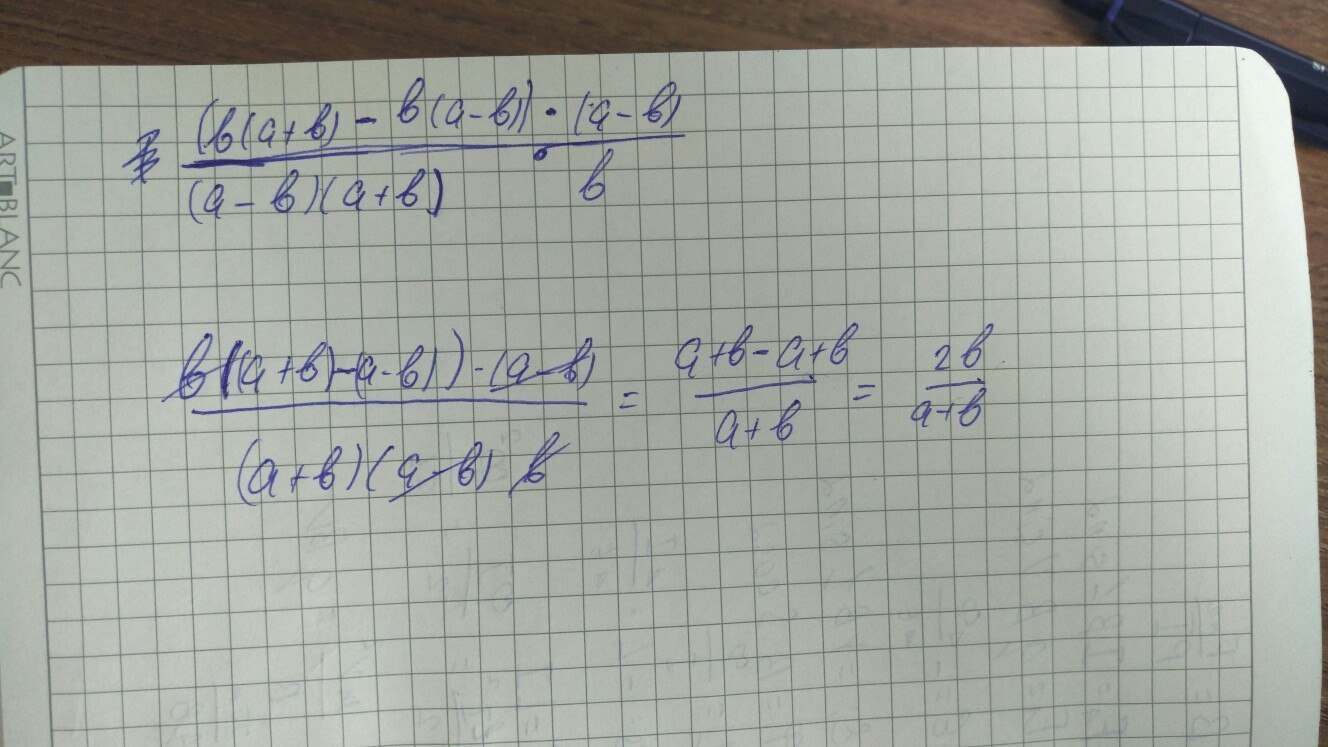 ART BLANC
(b(a+b) - b(a-b)) · (a-b)
(a-b)(a+b) · b
b((a+b)-(a-b)) · (a-b) = a+b-a+b = 2b
(a+b)(a-b) b a+b a+b